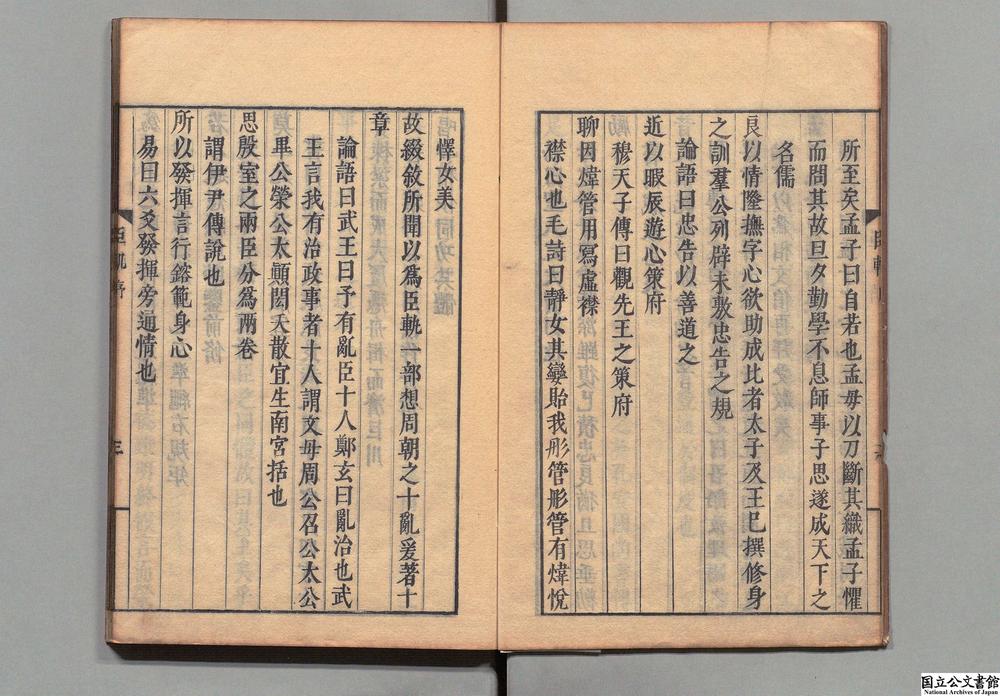 所至矣孟子曰自若也孟母以刀斷其織孟子懼
而問其故旦夕勤學不息師事子思遂成天下之
名儒
良以情隆撫字心欲助成比者太子及王已撰修身
之訓羣公列辟未敷忠告之規
論語曰忠告以善道之
近以暇辰遊心策府
穆天子傳曰觀先王之策府
聊因煒管用寫虛襟
襟心也毛詩曰靜女其孌貽我彤管彤管有煒悅
懌女美
故綴敘所聞以爲臣軌一部想周朝之十亂爰著十
章
論語曰武王曰予有亂臣十人鄭玄曰亂治也武
王言我有治政事者十人謂文母周公召公太公
畢公榮公太顛閎夭散宜生南宮括也
思殷室之兩臣分爲兩卷
謂伊尹傅說也
所以發揮言行鎔範身心
易曰六爻發揮旁通情也
臣軌序
三
国立公文書館
National Archives of Japan